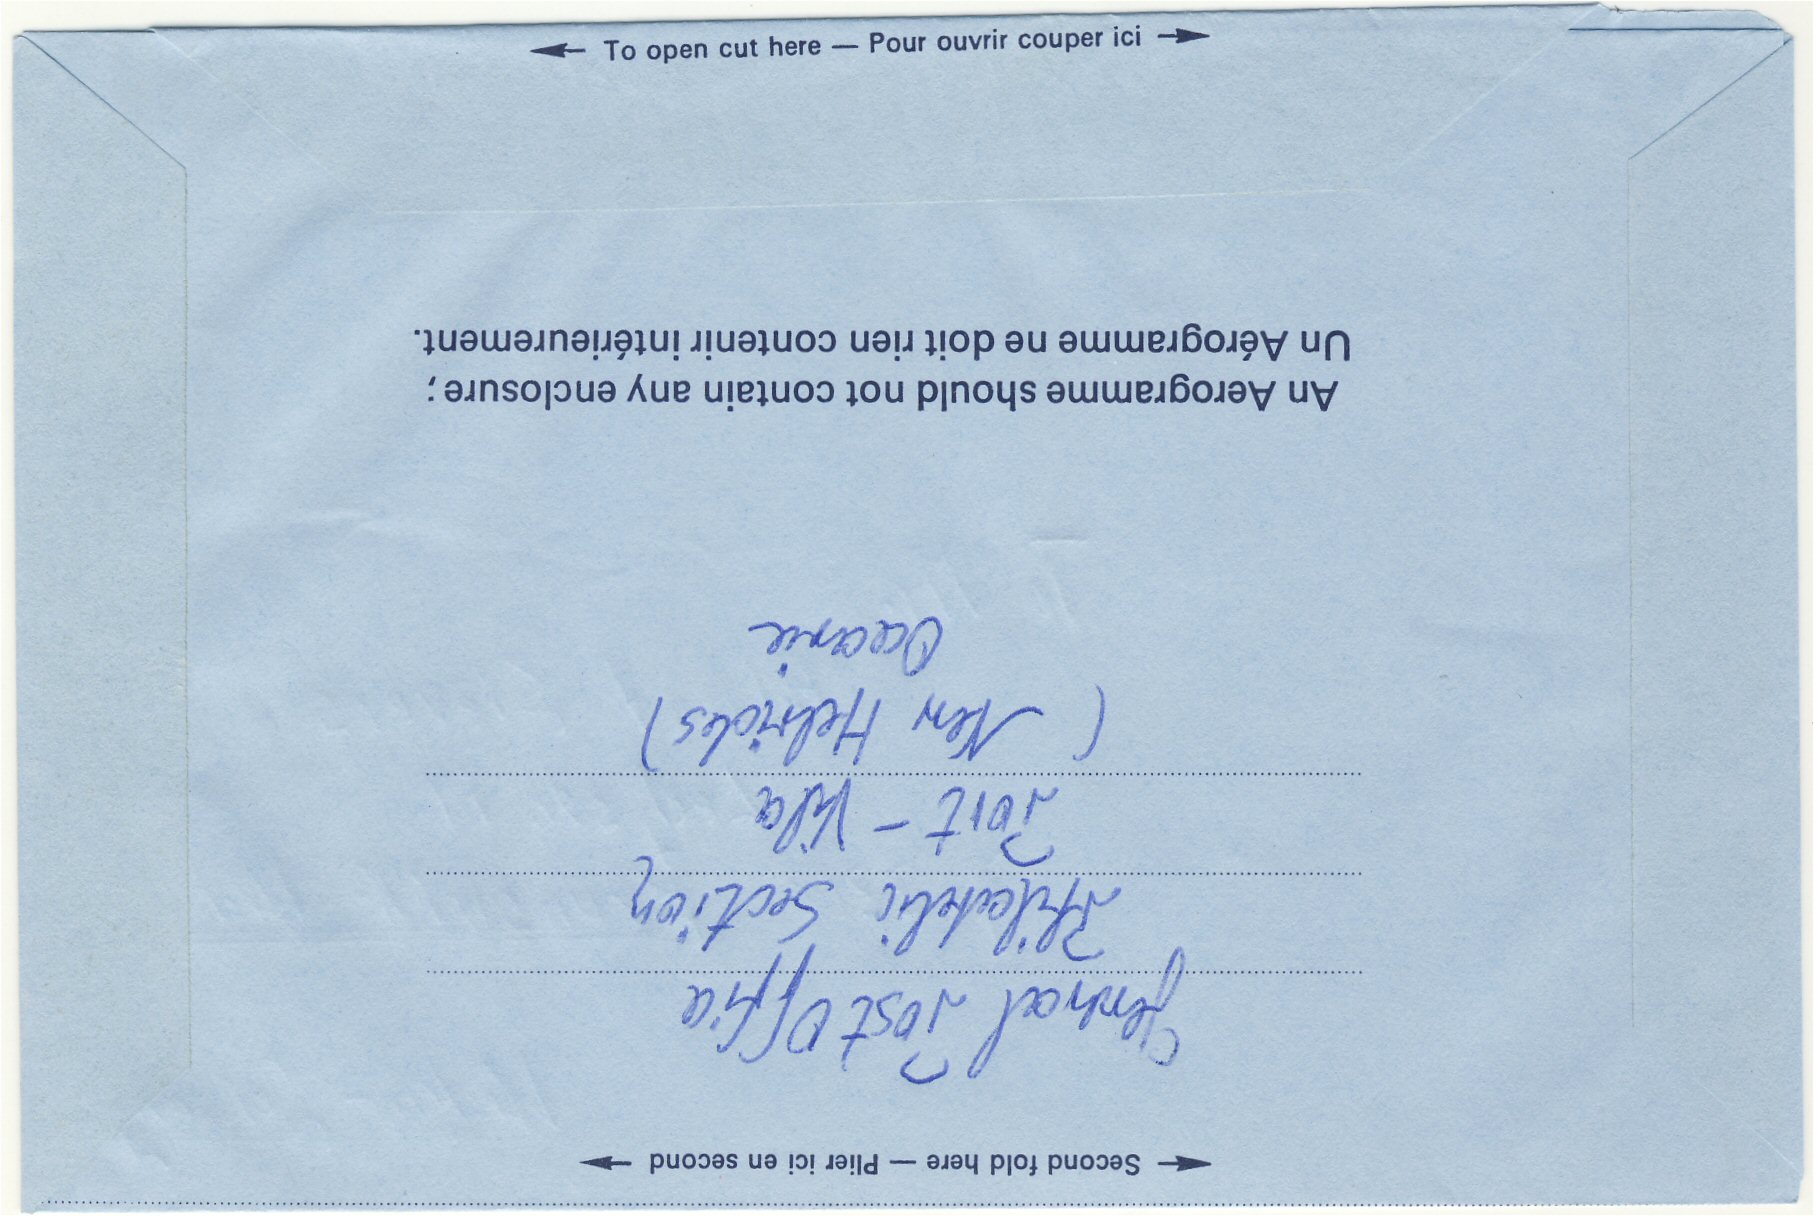 To open cut here — Pour ouvrir couper ici
Second fold here — Plier ici en second
General Post Office
Philatelic Section
Port - Vila
( New Hebrides )
Oceanie
An Aerogramme should not contain any enclosure;
Un Aérogramme ne doit rien contenir intérieurement.